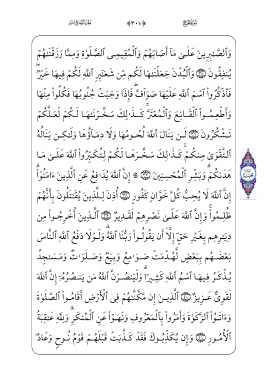 وَٱلصَّٰبِرِينَ عَلَىٰ مَآ أَصَابَهُمْ وَٱلْمُقِيمِى ٱلصَّلَوٰةِ وَمِمَّا رَزَقْنَٰهُمْ
يُنفِقُونَ ۝ وَٱلْبُدْنَ جَعَلْنَٰهَا لَكُم مِّن شَعَٰٓئِرِ ٱللَّهِ لَكُمْ فِيهَا خَيْرٌ
فَٱذْكُرُوا۟ ٱسْمَ ٱللَّهِ عَلَيْهَا صَوَآفَّ فَإِذَا وَجَبَتْ جُنُوبُهَا فَكُلُوا۟ مِنْهَا
وَأَطْعِمُوا۟ ٱلْقَانِعَ وَٱلْمُعْتَرَّ كَذَٰلِكَ سَخَّرْنَٰهَا لَكُمْ لَعَلَّكُمْ
تَشْكُرُونَ ۝ لَن يَنَالَ ٱللَّهَ لُحُومُهَا وَلَا دِمَآؤُهَا وَلَٰكِن يَنَالُهُ
ٱلتَّقْوَىٰ مِنكُمْ كَذَٰلِكَ سَخَّرَهَا لَكُمْ لِتُكَبِّرُوا۟ ٱللَّهَ عَلَىٰ مَا
هَدَىٰكُمْ وَبَشِّرِ ٱلْمُحْسِنِينَ ۝ ۞ إِنَّ ٱللَّهَ يُدَٰفِعُ عَنِ ٱلَّذِينَ ءَامَنُوٓا۟
إِنَّ ٱللَّهَ لَا يُحِبُّ كُلَّ خَوَّانٍ كَفُورٍ ۝ أُذِنَ لِلَّذِينَ يُقَٰتَلُونَ بِأَنَّهُمْ
ظُلِمُوا۟ وَإِنَّ ٱللَّهَ عَلَىٰ نَصْرِهِمْ لَقَدِيرٌ ۝ ٱلَّذِينَ أُخْرِجُوا۟ مِن
دِيَٰرِهِم بِغَيْرِ حَقٍّ إِلَّآ أَن يَقُولُوا۟ رَبُّنَا ٱللَّهُ وَلَوْلَا دَفْعُ ٱللَّهِ ٱلنَّاسَ
بَعْضَهُم بِبَعْضٍ لَّهُدِّمَتْ صَوَٰمِعُ وَبِيَعٌ وَصَلَوَٰتٌ وَمَسَٰجِدُ
يُذْكَرُ فِيهَا ٱسْمُ ٱللَّهِ كَثِيرًا وَلَيَنصُرَنَّ ٱللَّهُ مَن يَنصُرُهُۥٓ إِنَّ ٱللَّهَ
لَقَوِىٌّ عَزِيزٌ ۝ ٱلَّذِينَ إِن مَّكَّنَّٰهُمْ فِى ٱلْأَرْضِ أَقَامُوا۟ ٱلصَّلَوٰةَ
وَءَاتَوُا۟ ٱلزَّكَوٰةَ وَأَمَرُوا۟ بِٱلْمَعْرُوفِ وَنَهَوْا۟ عَنِ ٱلْمُنكَرِ وَلِلَّهِ عَٰقِبَةُ
ٱلْأُمُورِ ۝ وَإِن يُكَذِّبُوكَ فَقَدْ كَذَّبَتْ قَبْلَهُمْ قَوْمُ نُوحٍ وَعَادٌ